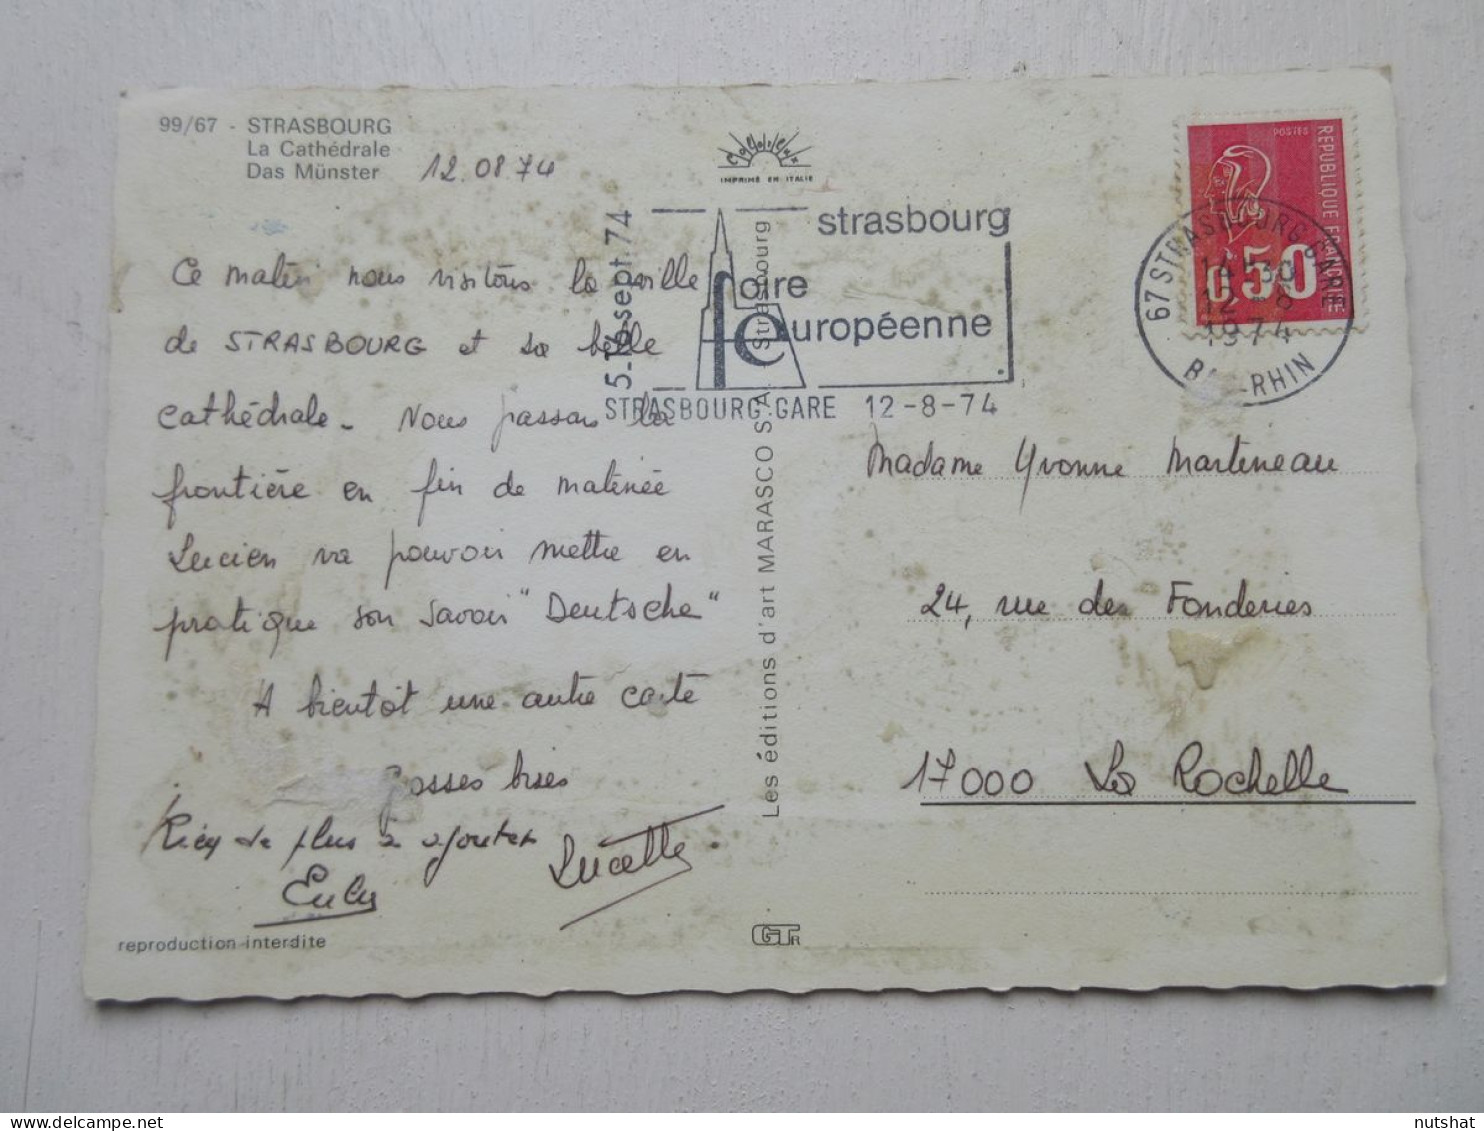 99/67 - STRASBOURG
La Cathédrale
Das Münster
12.08.74
IMPRIMÉ EN ITALIE
Ce matin nous visitons la ville
de STRASBOURG et sa belle
cathédrale. Nous passons la
frontière en fin de matinée
Lucien va pouvoir mettre en
pratique son savoir "Deutsche"
A bientôt une autre carte
Grosses bises
Rien de plus à ajouter
Lucette
reproduction interdite
5-16 sept 74
strasbourg
foire
européenne
STRASBOURG GARE 12-8-74
Les éditions d'art MARASCO S.A. Strasbourg
POSTES
REPUBLIQUE FRANCAISE
0,50
67 STRASBOURG GARE
14H30
12-8
1974
BAS-RHIN
Madame Yvonne Martineau
24, rue des Fonderies
17000 La Rochelle
nutshat